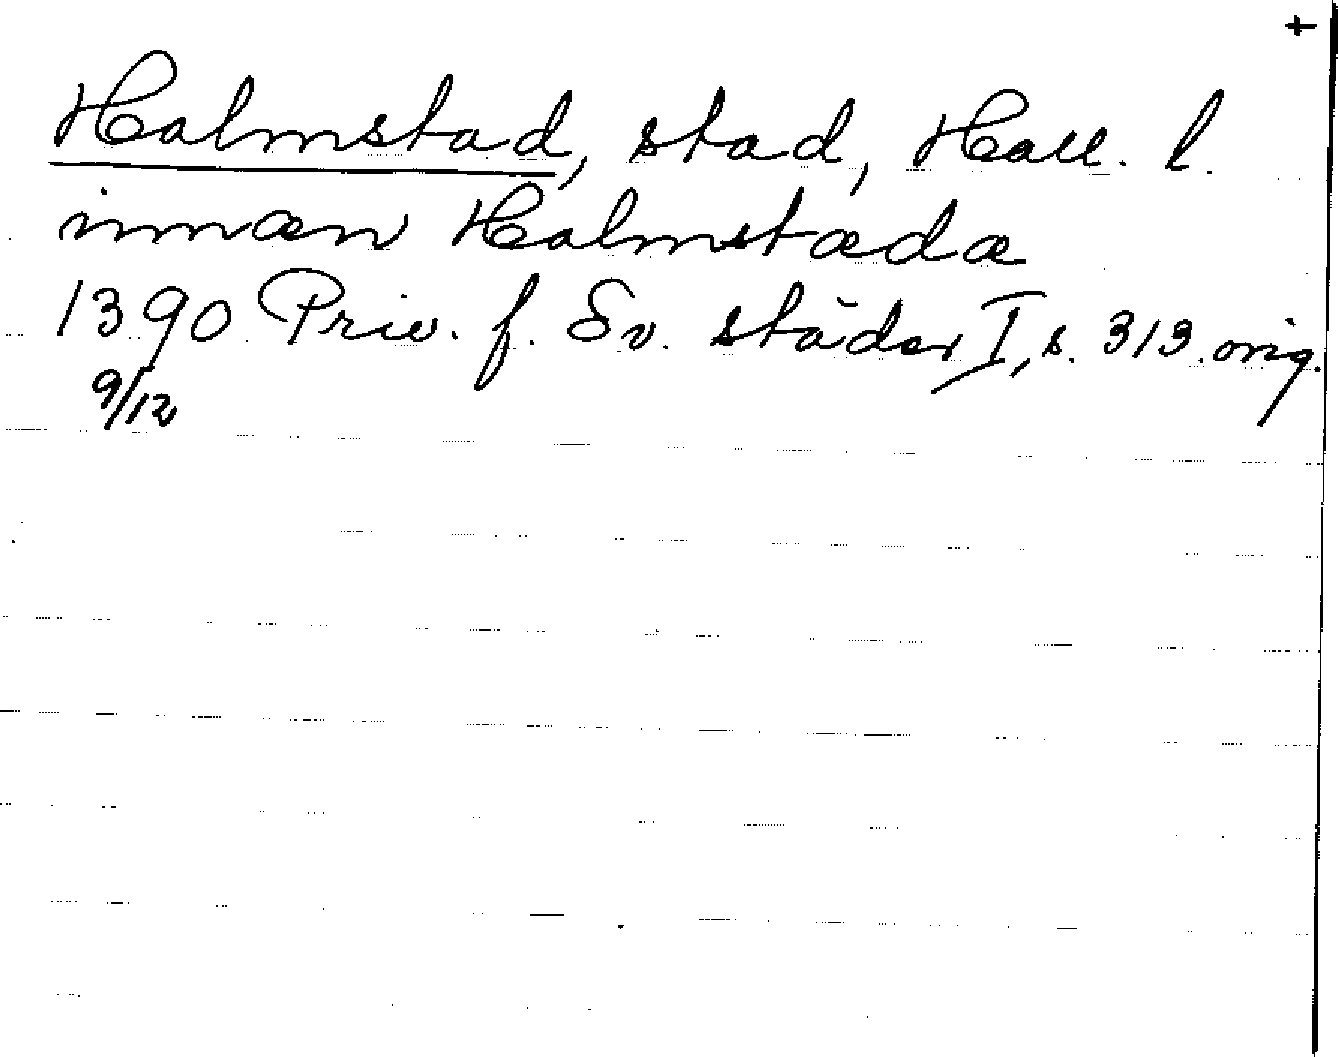 +
Halmstad, stad, Hall. l.
innan Halmstæda
1390 Priv. f. Sv. städer I, s. 313. orig.
9/12